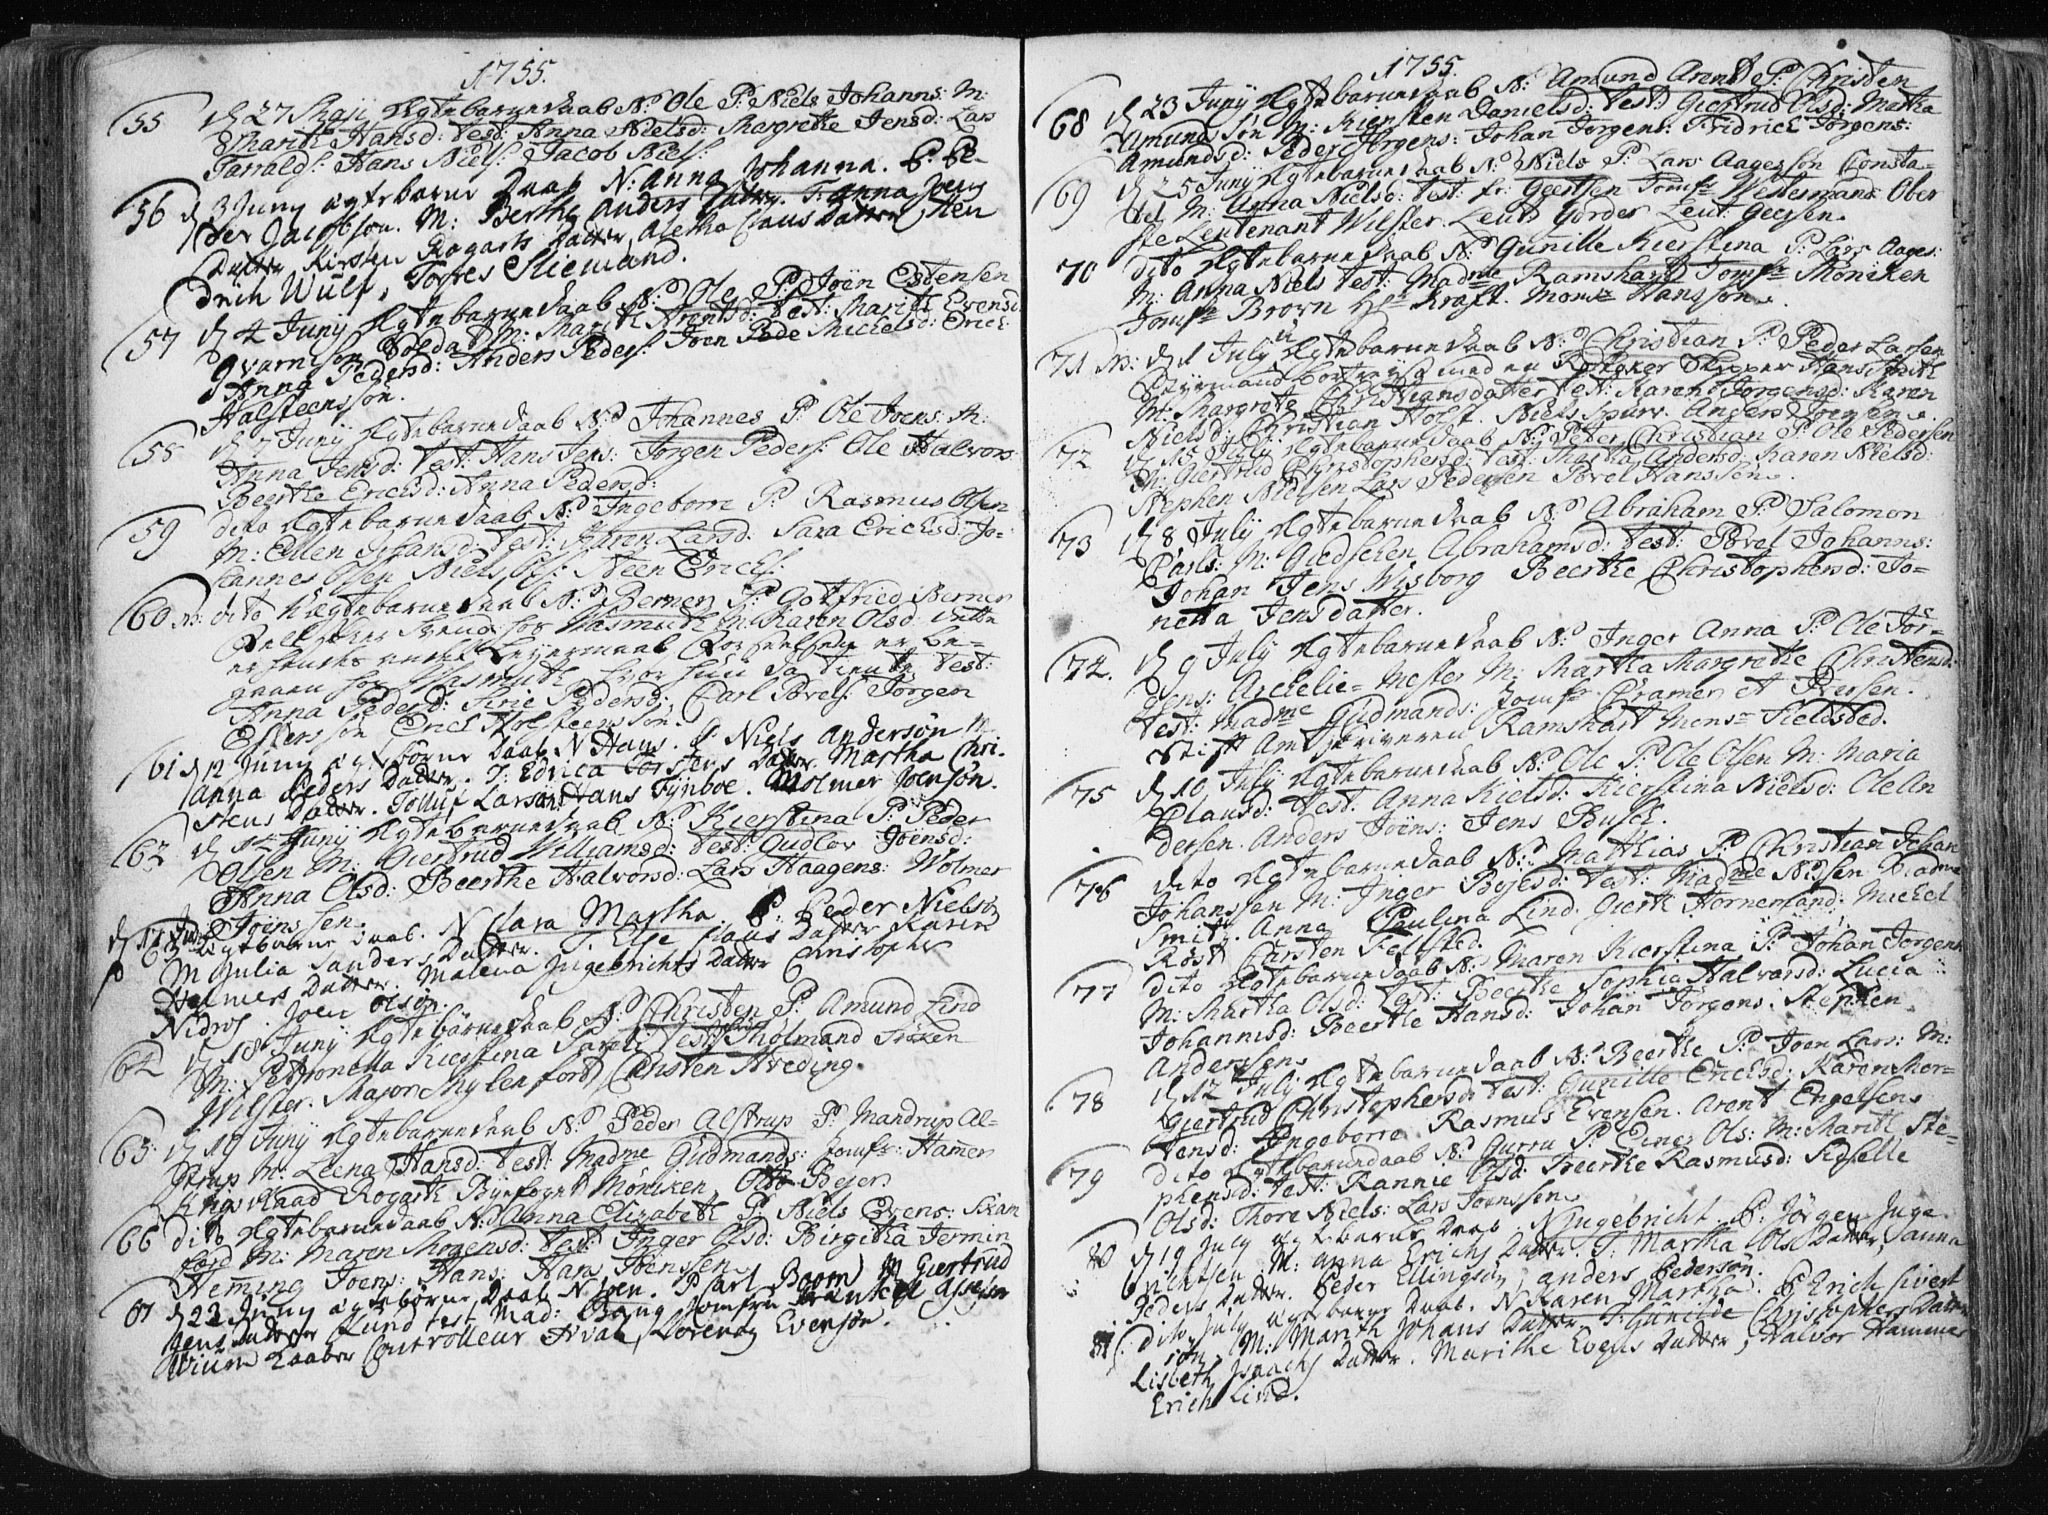 1755.
55 d 27 Maji Ægtebarnedaab N: Ole P: Niels Johanns: M:
Marith Hansd: Test: Anna Nielsd: Margrethe Jensd: Lars
Tarralds: Hans Niels: Jacob Niels:
56 d 3 Juny ægtebarne Daab N: Anna Johanna. P: Pe-
der Jacobson. M: Berthe Anders Datter. T: Anna Joens
Datter Kirsten Rogarts Datter, Aletha Claus Datter, Hen
drich Wulf, Torres Sliemand.
57 d 4 Junij Ægtebarnedaab N: Ole P: Joen Estensen
Qvarnison Soldat M: Marith Arentsd: Test: Marith Evensd:
Anna Pedersd: Anders Peders: Joen Pede Mickelsd: Erich
Halsteensøn.
58 d 7 Junij Ægtebarnedaab N: Johannes P: Ole Joens: M:
Anna Jensd: Test: Hans Jens: Jørgen Peders: Ole Halvors:
Beerthe Erichsd: Anna Pedersd:
59 dito Ægtebarnedaab N: Ingeborre P: Rasmus Olsen
M: Ellen Johansd: Test: Karen Larsd: Sara Erichsd: Jo-
hannes Olsen Niels Ols: Steen Erichs:
60 NB: dito Uægtebarnedaab N: Berner P: Gotfried Berner
Svend hos Wasmuth M: Karen Olsd: dette
er hendes andet Leyermaal er be-
gaaen hos Wasmuth hvor hun da tiente Test:
Anna Pedersd: Kirie Pedersd: Carl Povels: Jørgen
Espersøn Erich Halsteensøn.
61 d 12 Juny ægtebørne Daab N Hans. P Niels Andersøn M:
Anna Peders Datter. T: Edrica Torstens Datter Martha Chri-
stens Datter. Tolluf Larsøn Hans Fynboe. Molmer Joensøn.
62 d Junij Ægtebarnedaab N: Kierstina P: Peder
Olsen M: Giertrud Williamsd: Test: Gudlov Joensd:
Anna Olsd: Beerthe Halvorsd: Lars Haagens: Wolmer
Joenssen.
63 d 17 Juny Ægtebarne Daab. N Clara Martha. P: Peder Nielsøn
M Julia Sanders Datter. T. Else Claus Datter Karen
Helmers Datter. Malena Ingebrichts Datter Christopher
Nidros. Joen Olsøn.
64 d 18 Junij Ægtebarnedaab N: Christen P: Amund Lind
M: Petronella Kierstina Test: Holmand Frøken
Wilster. Major Mylenfort Carsten Hveding.
65 d 19 Junij Ægtebarnedaab N: Peder Alstrup P: Mandrup Al-
strup M: Leena Hansd: Test: Madme Gudmands: Jomfr: Hamer
Krigsraad Rogarth Byefoget Møniken, Otto Bejer.
66 dito Ægtebarnedaab N: Anna Elizabeth P: Niels Evens:
M: Maren Mogensd: Test: Inger Olsd: Birgitha Jermin
Heming Joens: Hans: Hans Joenssen.
67 d 23 Juny ægtebørne Daab N Joen. P Carl Boom M Giertrud
Jens Datter Lund test, Mad: Bang Jomfru Assessor
Kaaber Controlleur Hval, Lorentz Evensøn.
1755.
68 d 23 Junij Ægtebarnedaab N: Amund Arent P: Christen
Amundsøn M: Kiersten Danielsd: Test: Giertrud Olsd: Martha
Amundsd: Peder Jørgens: Johan Jørgens: Fridrich Jørgens:
69 d 25 Junij Ægtebarnedaab N: Niels P: Lars Aagessøn Consta-
bel M: Anna Nielsd: Test: fr: Geertsen Jomfr: Westermans Ober
ste Leutenant Wilster Leut: Gørder Leut: Geersen.
70 dito Ægtebarnedaab N: Gunille Kierstina P: Lars Aages:
M: Anna Niels Test: Madme Ramshart Jomfr: Møniken
Jomfr: Brovn Hr Kraft. Mons: Hanssøn.
71 NB: d 1 July Uægtebarnedaab N: Christian P: Peder Larsen
Styrmand bortreyst med en Skipper Hans
M: Margrethe Christiansdatter Test: Karen Jørgensd: Karen
Nielsd: Christian Holst. Niels Spurr. Anders Joensen.
72 d 15 Julij Ægtebarnedaab N: Peter Christian P: Ole Pedersen
M: Giertrud Christophersd: Test: Martha Andersd: Karen Nielsd:
Stephen Nielsen Lars Pedersen Povel Hanssøn.
73 d 8 July Ægtebarnedaab N: Abraham P: Salomon
Carls: M: Giedschen Abrahamsd: Test: Povel Johanns:
Johan Jens Wisborg Beerthe Christophersd: Jo-
netta Jensdatter.
74. d 9 July Ægtebarnedaab N: Inger Anna P: Ole Jør-
gens: Archelie-Mester M: Martha Margrethe Christensd:
Test: Madme Gudmands: Jomfr: Cramer et Iversen.
Stift Amtskriveren Ramshart Mons: Fieldsted.
75 d 10 July Ægtebarnedaab N: Ole P: Ole Olsen M: Maria
Clausd: Test: Anna Kielsd: Kierstina Nielsd: Ole An
dersen. Anders Joens: Jens Busch.
76 dito Ægtebarnedaab N: Mathias P: Christian Johan
Johanssen M: Inger Bojesd: Test: Madme Nissen Madme
Smith. Anna Paulina Lind. Giert Hornemand: Michel
Rost Carsten Felsted.
77 dito Ægtebarnedaab N: Maren Kierstina P: Johan Jørgens
M: Martha Olsd: Test: Beerthe Sophia Halvorsd: Lucia
Johannsd: Beerthe Hansd: Johan Jørgens: Stephen
Anderssen
78 d 12 July Ægtebarnedaab N: Beerthe P: Joen Lars: M:
Giertrud Christophersd: Test: Gunille Erichsd: Karen Mor-
tensd: Ingeborre Rasmus Evensen. Arent Engelsen
79 dito Ægtebarnedaab N: Gurru P: Einer Ols: M: Marith Ste-
phensd: Test: Rannie Olsd: Beerthe Rasmusd: Sidselle
Olsd: Thore Niels: Lars Joenssen.
80 d 19 July ægtebarne Daab. N Ingebricht. P: Jørgen Inge
brichtsen M: Anna Erichs Datter. T: Martha Ols Datter, Janna
Peders Datter. Peder Ellingsøn, Anders Pedersøn.
81 dito July ægtebarne Daab. N Karen Martha. P Erich Sivert
søn, M: Marith Johans Datter T: Gunilde Christophers Datter
Lisbeth Isaachs Datter. Marithe Evens Datter, Halvor Hammer
Erich Lind.